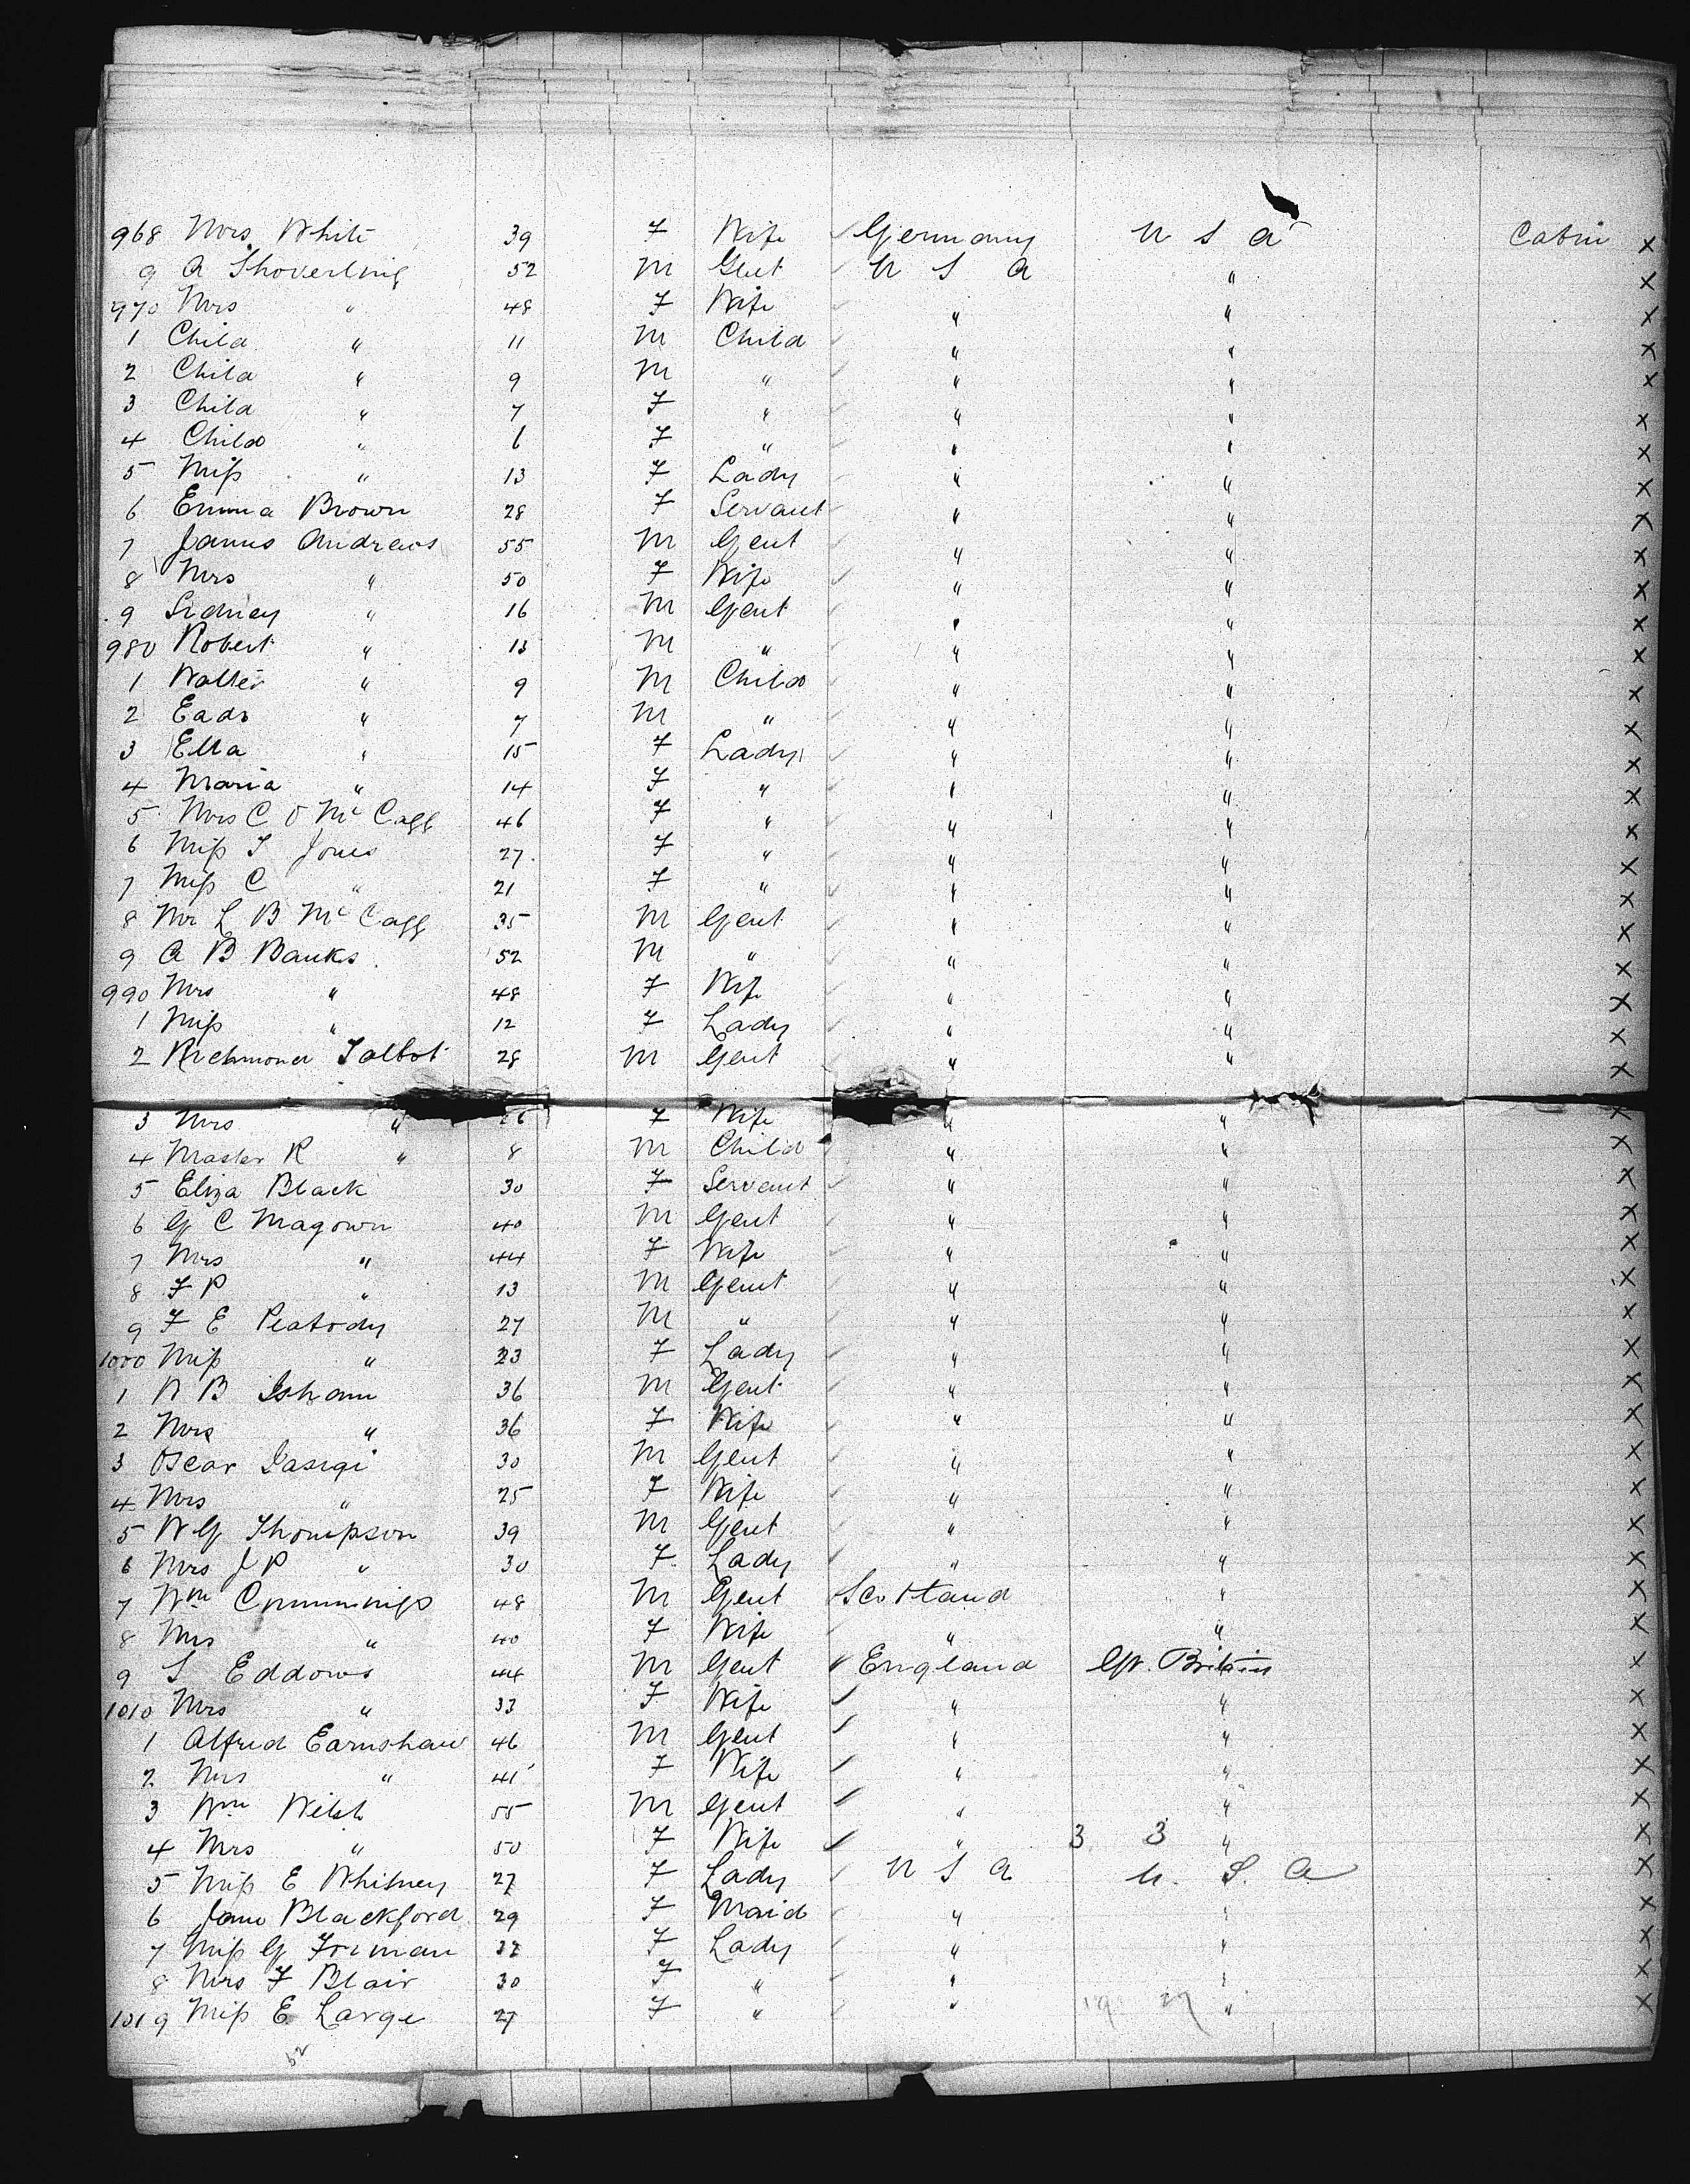 968 Mrs White 39 F Wife Germany U S A Cabin X
9 A Shoverling 52 M Gent U S A " X
970 Mrs " 48 F Wife " " X
1 Child " 11 M Child " " X
2 Child " 9 M " " " X
3 Child " 7 F " " " X
4 Child " 6 F " " " X
5 Miss " 13 F Lady " " X
6 Emma Brown 28 F Servant " " X
7 James Andrews 55 M Gent " " X
8 Mrs " 50 F Wife " " X
9 Sidney " 16 M Gent " " X
980 Robert " 13 M " " " X
1 Walter " 9 M Child " " X
2 " 7 M " " " X
3 Ella " 15 F Lady " " X
4 Maria " 14 F " " " X
5 Mrs C O Mc Cagg 46 F " " " X
6 Miss Jones 27 F " " " X
7 Miss C " 21 F " " " X
8 Mr L B Mc Cagg 35 M Gent " " X
9 A B Banks 52 M " " " X
990 Mrs " 48 F Wife " " X
1 Miss " 12 F Lady " " X
2 Richmond Talbot 28 M Gent " " X
3 Mrs " F Wife " " X
4 Master R " 8 M Child " " X
5 Eliza Black 30 F Servant " " X
6 G C Magown 40 M Gent " " X
7 Mrs " 44 F Wife " " X
8 F P " 13 M Gent " " X
9 F E Peabody 27 M " " " X
1000 Miss " 23 F Lady " " X
1 B Isham 36 M Gent " " X
2 Mrs " 36 F Wife " " X
3 Oscar Iasigi 30 M Gent " " X
4 Mrs " 25 F Wife " " X
5 W G Thompson 39 M Gent " " X
6 Mrs J P " 30 F Lady " " X
7 Wm Cummings 48 M Gent Scotland " X
8 Mrs " 40 F Wife " " X
9 S Eddows 44 M Gent England Gr. Britain X
1010 Mrs " 33 F Wife " " X
1 Alfred Earnshaw 46 M Gent " " X
2 Mrs " 41 F Wife " " X
3 Wm 55 M Gent " " X
4 Mrs " 50 F Wife " 3 3 " X
5 Miss E Whitney 27 F Lady U S A U. S. A X
6 Jane Blackford 29 F Maid " " X
7 Miss G Forman F Lady " " X
8 Mrs F Blair 30 F " " " X
1019 Miss E Large 27 F " " " X
52